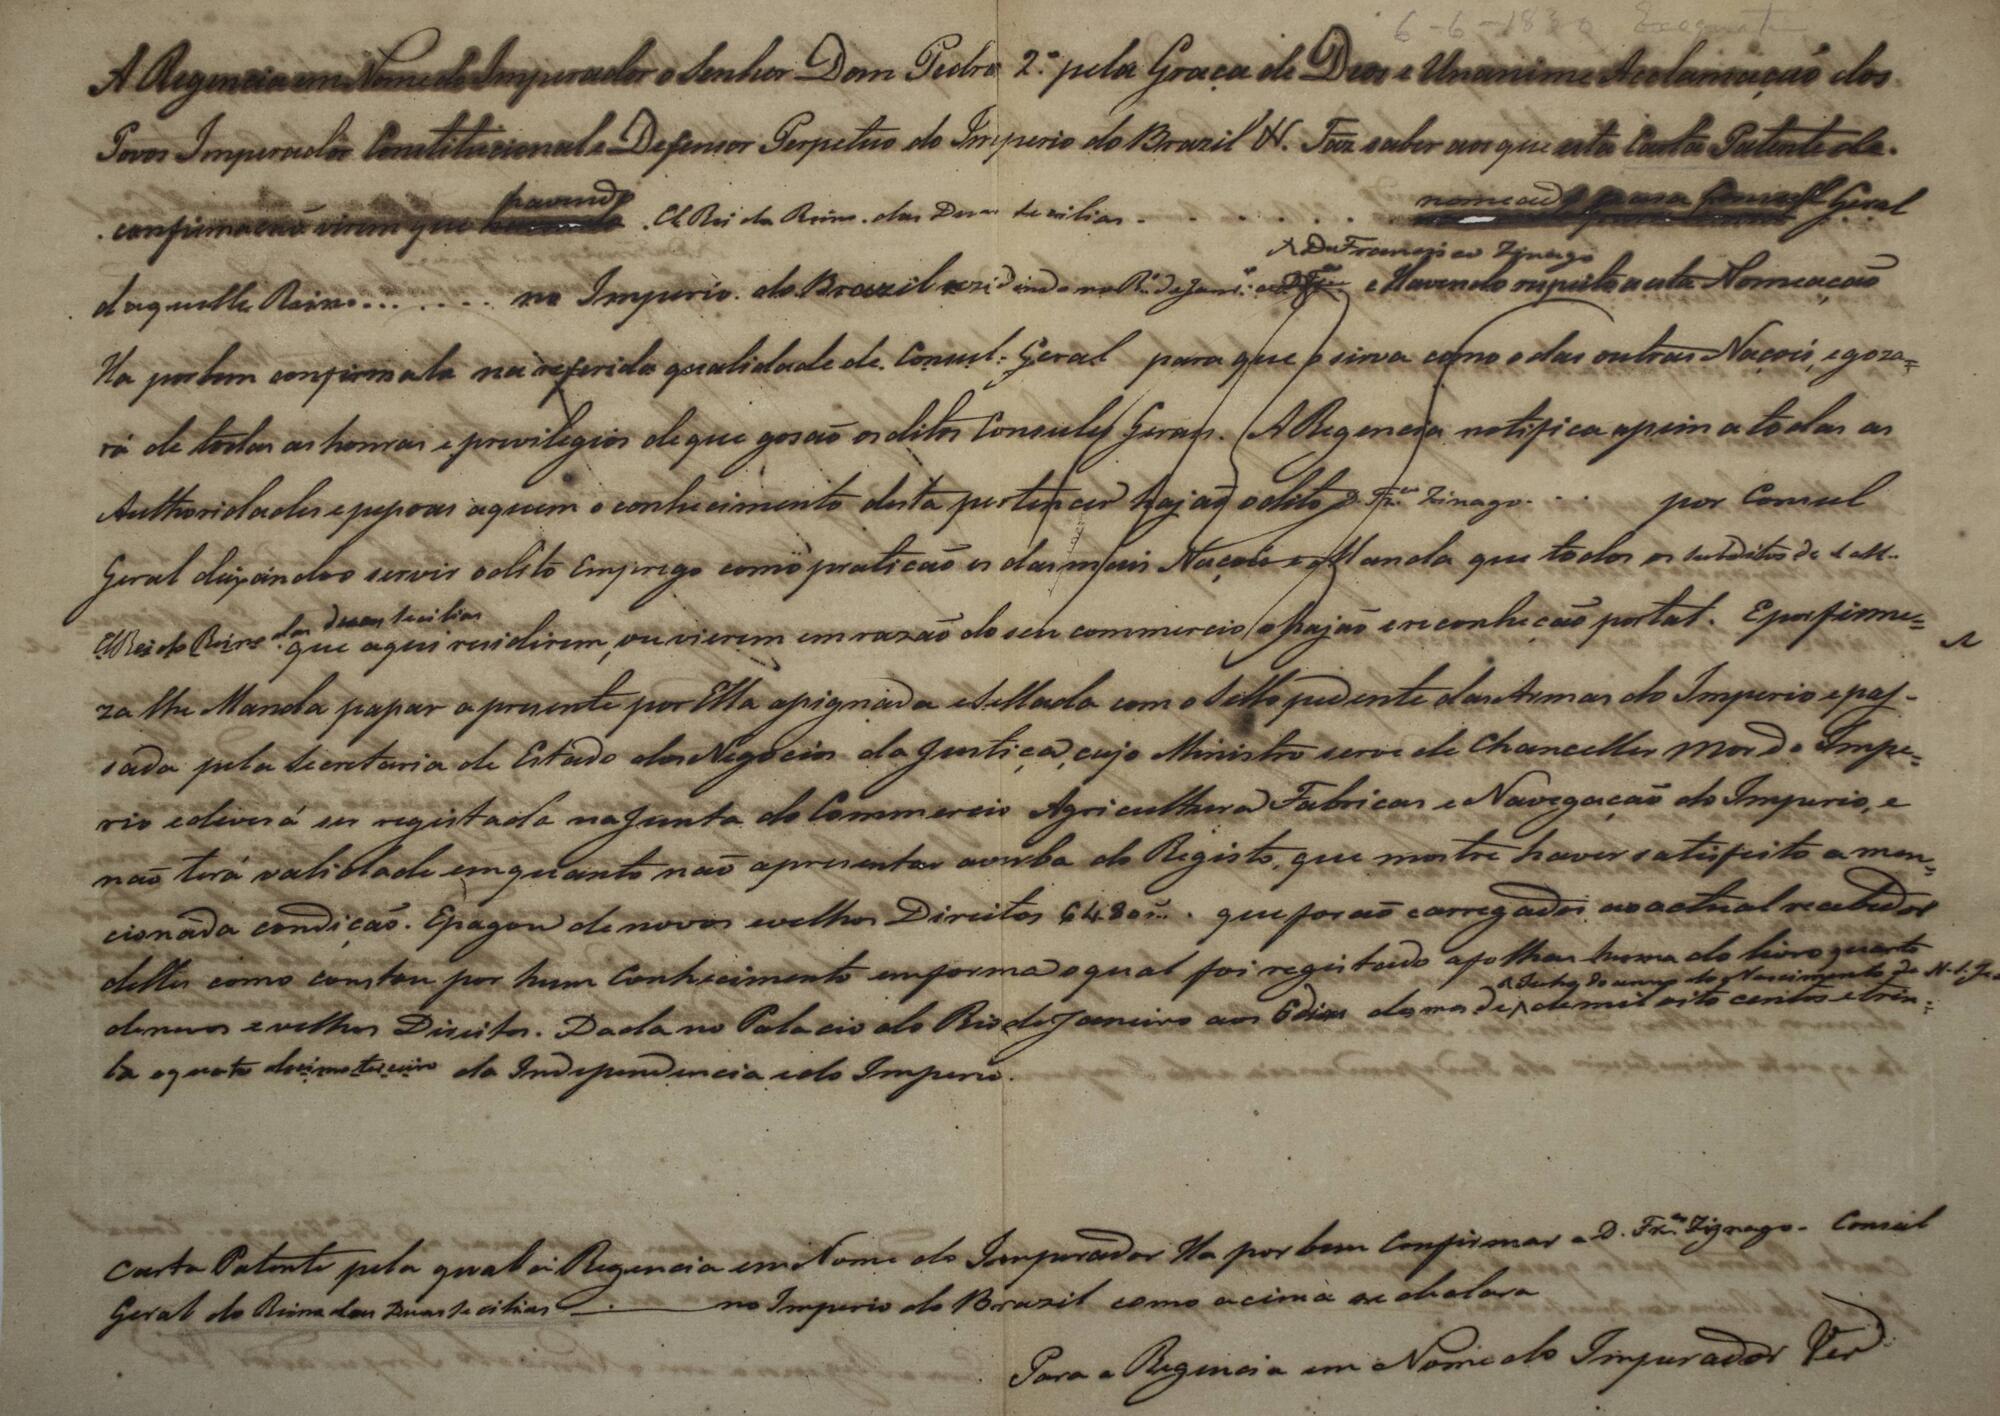 6-6-1830 Exequatur
A Regencia em Nome do Imperador o Senhor Dom Pedro 2.º pela Graça de Deos e Unanime Acclamação dos
Povos Imperador Constitucional e Defensor Perpetuo do Imperio do Brazil &. Faz saber aos que esta Carta Patente de
confirmacão virem que havendo El Rei do Reino das Duas Secilias nomeado para Consul Geral
daquelle Reino no Imperio do Brazil rezidindo no Rº de Janrº a D. Francisco Zignago e Havendo respeito a esta Nomeação
Ha por bem confirmala na referida qualidade de Consul Geral para que o sirva como o das outras Naçoẽs, e goza=
rá de todas as honras e previlegios de que gosaõ os ditos Consules Geraes. A Regencia notifica assim a todas as
Authoridades e pessoas a quem o conhecimento desta pertencer hajaõ o dito D. Frco Zinago por Consul
Geral deixando o servir o dito Emprego como o praticaõ os das mais Naçoẽs e Manda que todos os subditos de
El Rei do Reino das Duas Secilias que aqui residirem, ou vierem em razaõ do seu commercio, o hajaõ e reconheçaõ por tal. E por firme=
za lhe Manda passar a presente por Ella assignada e Sellada com o Sello pedente das Armas do Imperio e pas-
sada pela Secretaria de Estado dos Negocios da Justiça, cujo Ministro serve de Chanceller Mor do Impe=
rio e deverá ser registada na Junta do Commercio Agricultura Fabricas e Navegaçaõ do Imperio, e
naõ terá validade em quanto naõ apresentar averba do Registo, que mostre haver satisfeito a men=
cionada condiçaõ. E pagou de novos e velhos Direitos 6480 que foraõ carregados ao actual recebedor
delles como constou por hum Conhecimento em forma o qual foi registado a folhas huma do livro quarto
de novos e velhos Direitos. Dada no Palacio do Rio de Janeiro aos 6 dias do mes de Julho do anno do Nascimento de N. S. J. de mil oito centos e trin=
ta e quatro decimo terceiro da Independencia e do Imperio.
Carta Patente pela qual a Regencia em Nome do Imperador Ha por bem Confirmar a D. Frco Zignago Consul
Geral do Reino das Duas Secilias no Imperio do Brazil como acima se declara
Para a Regencia em Nome do Imperador Ver